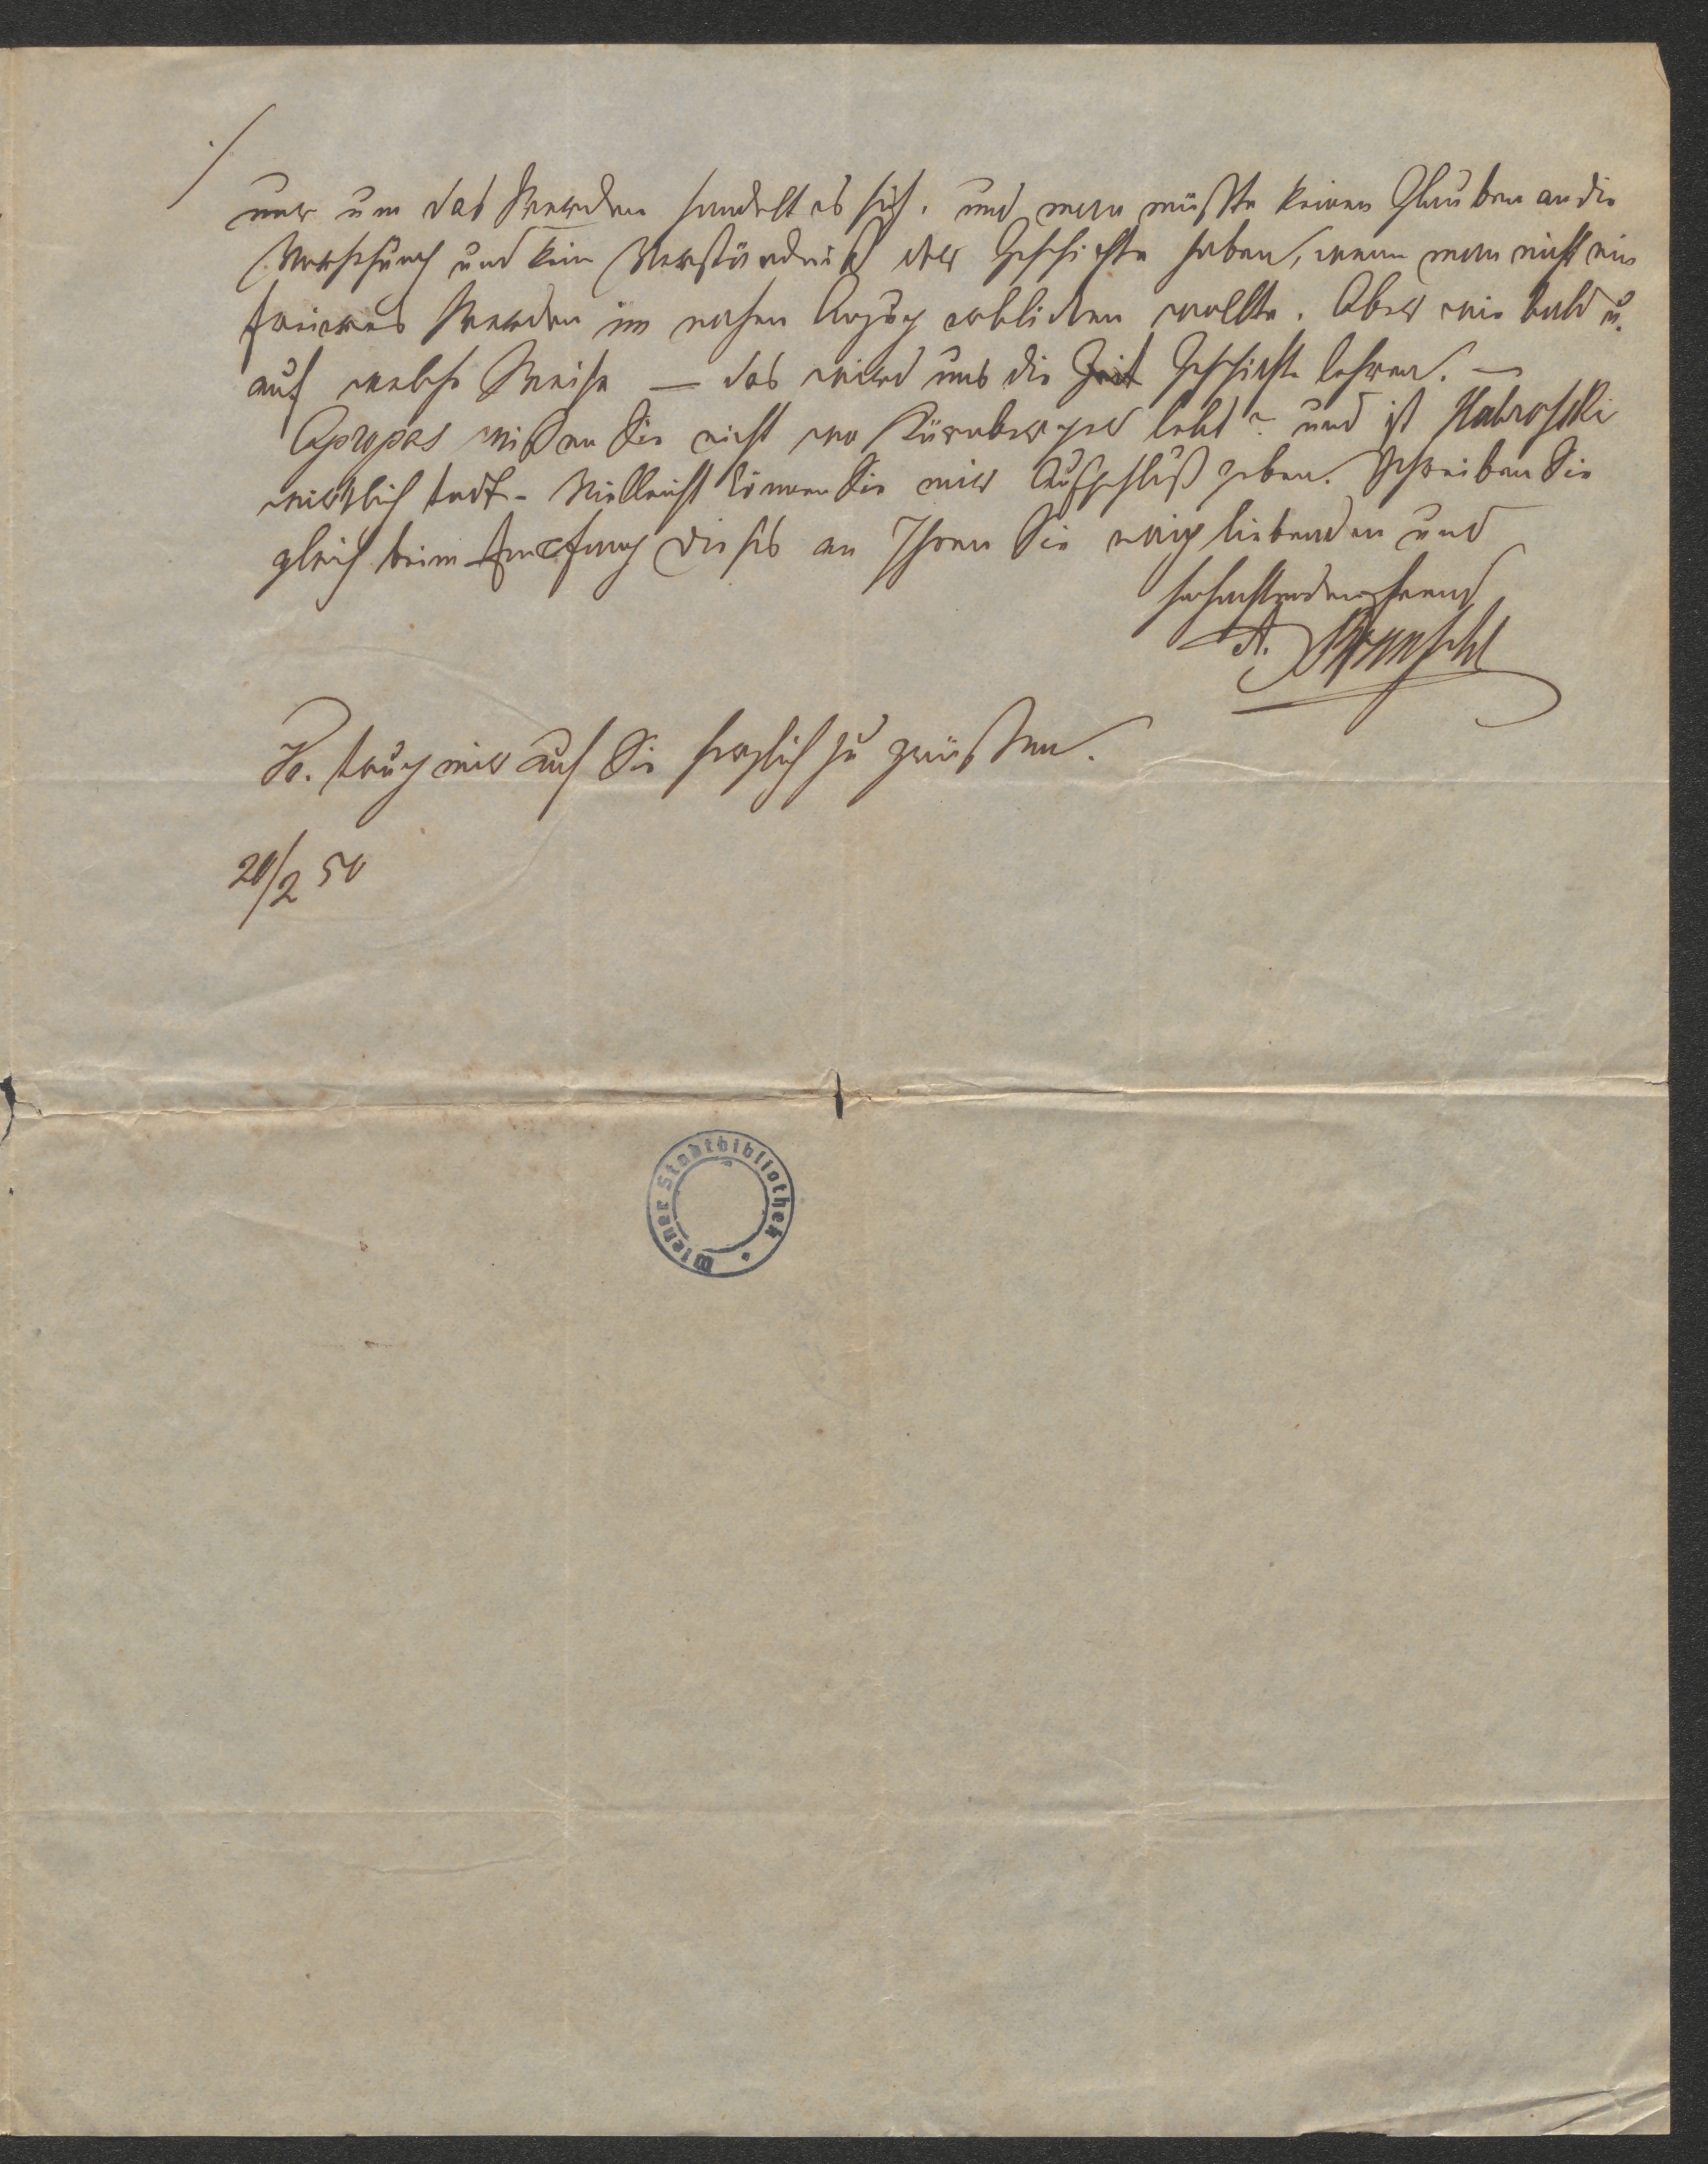 ./.
nur um das Werden handelt es sich. und man müßte keinen Glauben an die
Vorsehung und kein Verständniß der Geschichte haben, wenn man nicht ein
freieres Werden im nahen Anzug erblicken wollte. Aber wie bald u.
auf welche Weise — das wird uns die Zeit Geschichte lehren. —
Apropos wißen Sie nicht wo Kürnberger lebt? und ist
wirklich todt. Vielleicht können Sie mir Aufschluß geben. Schreiben Sie
gleich beim Empfang dieses an Ihren Sie ewig liebenden und
hochachtenden Freund
A.
trug mir auf Sie herzlich zu grüßen.
20/2 50
Wiener Stadtbibliothek